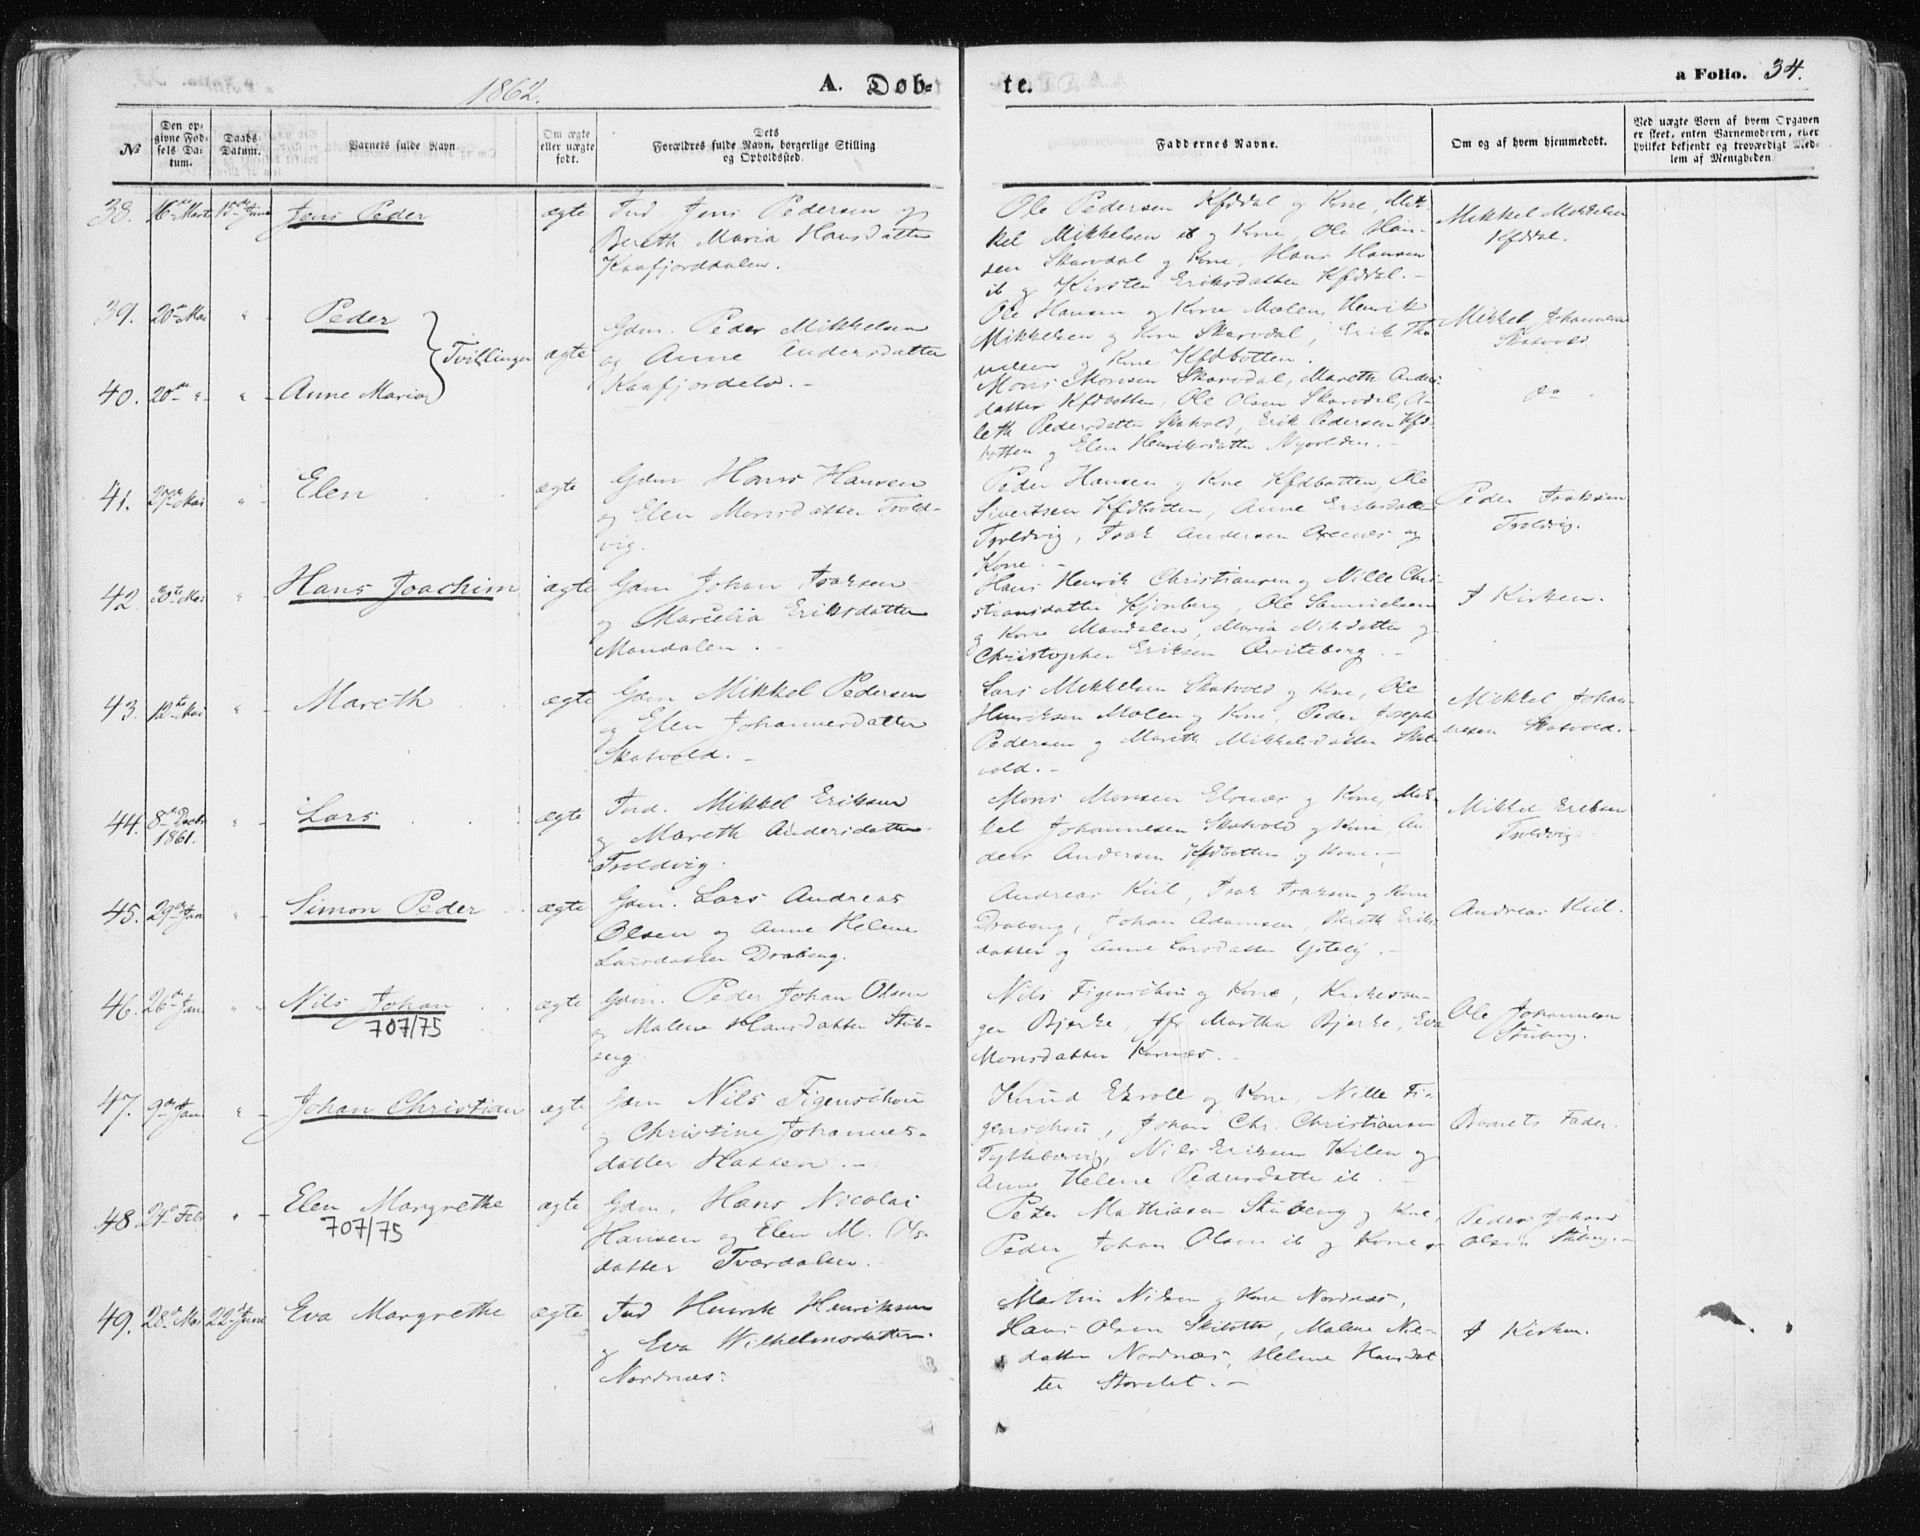 1862.
A. Døb-
te.
a Folio. 34.
№
Den op-
givne Fød-
sels Da-
tum.
Daabs
Datum.
Barnets fulde Navn
Om ægte
eller uægte
født.
Dets
Forældres fulde Navn, borgerlige Stilling
og Opholdssted.
Faddernes Navne.
Om og af hvem hjemmedøbt.
Ved uægte Børn af hvem Opgaven
er skeet, enten Barnemoderen, eller
hvilket bekjendt og troværdigt Med-
lem af Menigheden.
38. 16de Marts 15de Juni Jens Peder ægte Ind Jens Pedersen og
Bereth Maria Hansdatter
Kaafjorddalen.
Ole Pedersen Kfddal og Kone, Mik-
kel Mikkelsen ib og Kone, Ole Han-
sen Skarvdal og Kone, Hans Hansen
ib og Kirsten Eriksdatter Kfddal. -
Mikkel
Kfddal.
39. 20de Mai " Peder
Tvillinger
ægte
Gdm. Peder Mikkelsen
og Anne Andersdatter
Kaafjordelv. -
Ole Hansen og Kone Molen, Henrik
Mikkelsen og Kone Skarvdal, Erik Tho-
og Kone Kfdbotten.
Mikkel Johannesen
Skatvold
40. 20de " " Anne Maria
Mons Monsen Skarvdal, Mareth Anders-
datter Kfdbotten, Ole Olsen Skarvdal, A-
leth Pedersdatter Skatvold, Erik Pedersen Kfd-
botten og Elen Henriksdatter Nyvolden. -
do
41. 27de Mai " Elen ægte Gdm Hans Hansen
og Elen Monsdatter Trold-
vig.
Peder Hansen og Kone Kfdbotten, Ole
Sivertsen Kfdbotten, Anne Eriksdatter
Troldvig, Isak Andersen Axenæs og
Kone. -
Peder Isaksen
Troldvig.
42. 30te Mai " Hans Joachim ægte Gdm Johan Isaksen
og Marcelia Eriksdatter
Mandalen. -
Hans Henrik Christiansen og Nille Chri-
stiansdatter Kjønberg, Ole Samuelsen
og Kone Mandalen, Maria Nilsdatter og
Christopher Eriksen Qviteberg. -
I Kirken.
43. 12te Mai " Mareth ægte Gdm Mikkel Pedersen
og Elen Johannesdatter
Skatvold. -
Lars Mikkelsen Skatvold og Kone, Ole
Henriksen Molen og Kone, Peder Joseph
Pedersen og Mareth Mikkelsdatter Skat-
vold. -
Mikkel Johan-
nesen Skatvold. -
44. 8de Decbr
1861. " Lars ægte Ind. Mikkel Eriksen
og Mareth Andersdatter
Troldvig.
Mons Monsen Elvnæs og Kone, Mik-
kel Johannesen Skatvold og Kone, An-
ders Andersen Kfdbotten og Kone. -
Mikkel Eriksen
Troldvig.
45. 29de Jan " Simon Peder ægte Gdm. Lars Andreas
Olsen og Anne Helene
Larsdatter Drabeng.
Andreas Kiil, Isak Isaksen og Kone
Drabeng, Johan Adamsen, Bereth Eriks-
datter og Anne Larsdatter Ysteby. -
Andreas Kiil.
46. 26de Jan " Nils Johan
707/75
ægte Gdm. Peder Johan Olsen
og Malene Hansdatter Stub-
eng.
Nils Figenschou og Kone, Kirkesan-
ger Bjerke, Jfr Martha Bjerke, Eva
Monsdatter Kornæs. -
Ole Johannesen
Stubeng.
47. 9de Jan " Johan Christian ægte Gdm Nils Figenschou
og Christine Johannes-
datter Hassen. -
Knud Ekroll og Kone, Nille Fi-
genschou, Johan Chr. Christiansen
Tyttebærvig, Nils Eriksen Kilen og
Anne Helene Pedersdatter ib. -
Barnets Fader.
48. 24de Febr " Elen Margrethe
707/75
ægte Gdm. Hans Nicolai
Hansen og Elen M. Ols-
datter Tværdalen.
Peter Mathiasen Stubeng og Kone,
Peder Johan Olsen ib og Kone. -
Peder Johan
Olsen Stubeng. -
49. 28de Mai 22de Juni Eva Margrethe ægte Ind Henrik Henriksen
og Eva Wilhelmsdatter
Nordnæs.
Martin Nilsen og Kone Nordnæs,
Hans Olsen Skibotten, Malene Nils-
datter Nordnæs, Helene Hansdat
ter Storslet. -
I Kirken.